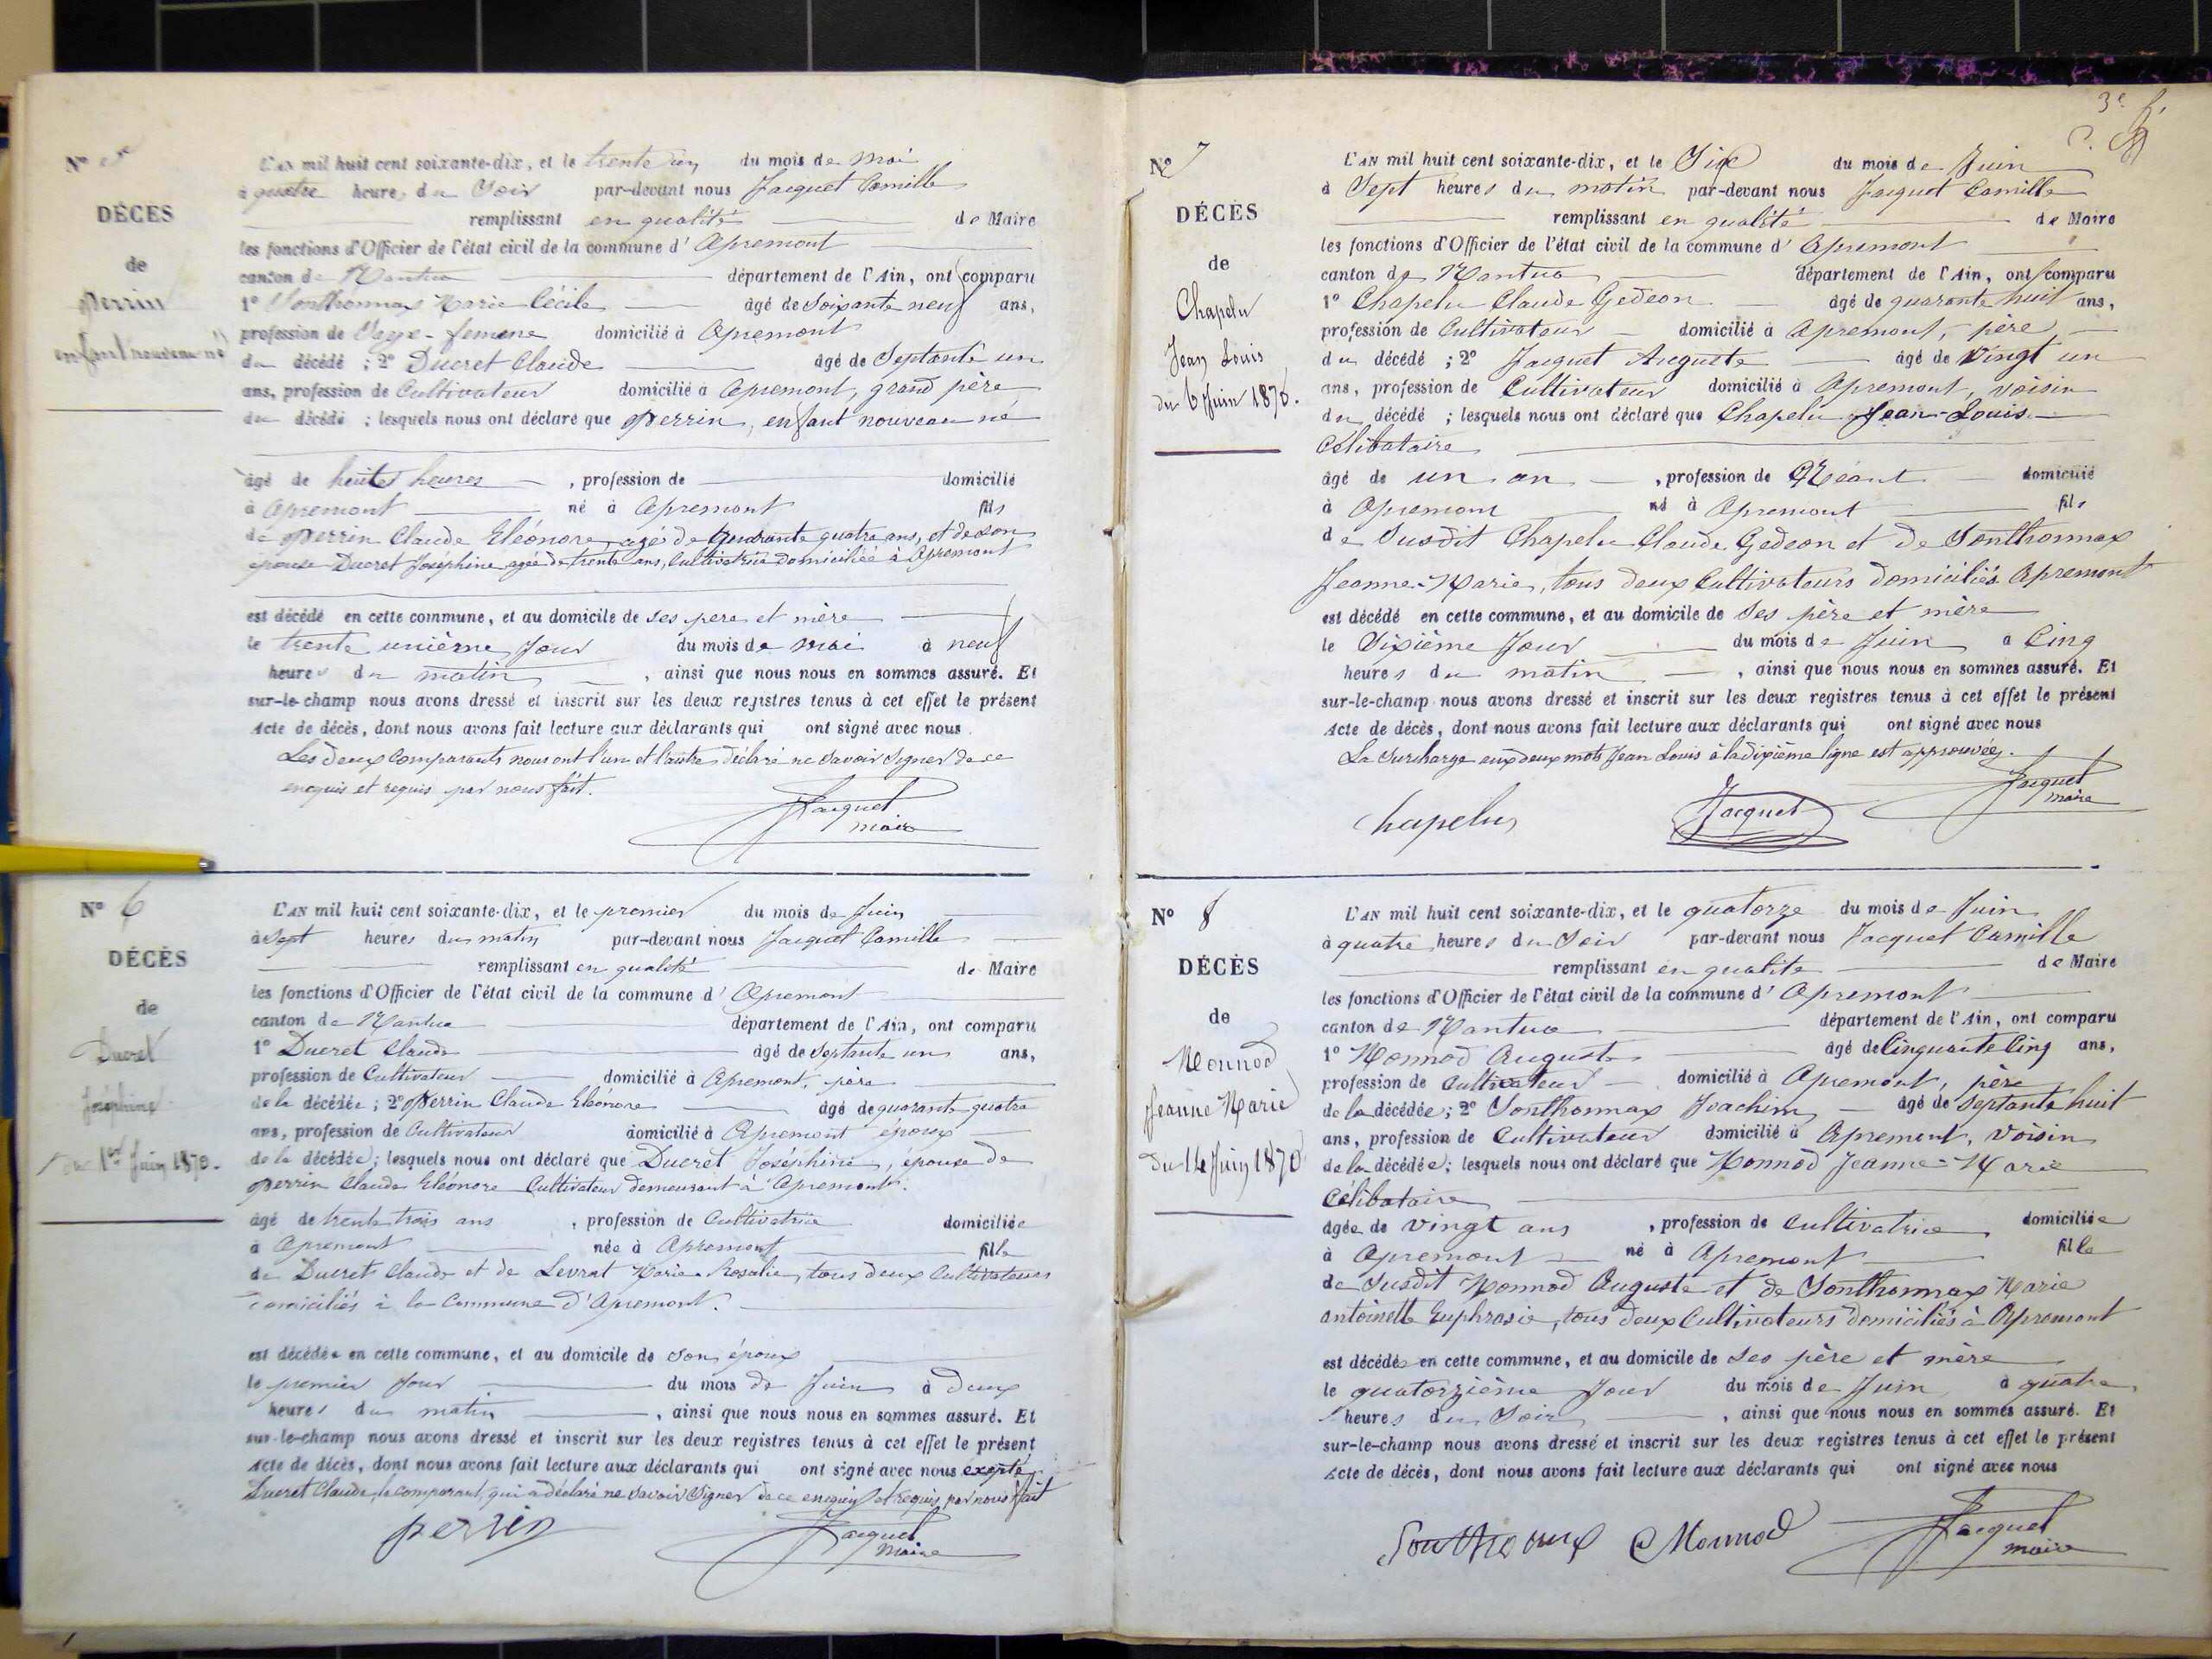 Nº 5
DÉCÈS
de
Perrin
enfant nouveau né
L'AN mil huit cent soixante-dix, et le trente un du mois de Mai
à quatre heures du Soir par-devant nous Jacquet Camille
remplissant en qualité de Maire
les fonctions d'Officier de l'état civil de la commune d' Apremont
canton de Nantua département de l'Ain, ont comparu
1º Sonthonnax Marie Cécile âgé de Soixante neuf ans,
profession de Sage-femme domicilié à Apremont
du décédé ; 2º Ducret Claude âgé de Septante un
ans, profession de Cultivateur domicilié à Apremont, grand père
du décédé ; lesquels nous ont déclaré que Perrin, enfant nouveau né
âgé de huit heures , profession de domicilié
à Apremont né à Apremont fils
de Perrin Claude Eléonore, agé de Quarante quatre ans, et de son
épouse Ducret Joséphine agée de trente ans, Cultivatrice domiciliée à Apremont
est décédé en cette commune, et au domicile de ses pere et mère
le trente unième Jour du mois de mai à neuf
heures du matin , ainsi que nous nous en sommes assuré. Et
sur-le-champ nous avons dressé et inscrit sur les deux registres tenus à cet effet le présent
Acte de décès, dont nous avons fait lecture aux déclarants qui ont signé avec nous
Les deux Comparants nous ont l'un et l'autre déclaré ne savoir signer de ce
enquis et requis par nous fait.
Jacquet
maire
Nº 6
DÉCÈS
de
Ducret
Joséphine
du 1er Juin 1870.
L'AN mil huit cent soixante-dix, et le premier du mois de Juin
à Sept heures du matin par-devant nous Jacquet Camille
remplissant en qualité de Maire
les fonctions d'Officier de l'état civil de la commune d' Apremont
canton de Nantua département de l'Ain, ont comparu
1º Ducret Claude âgé de Septante un ans,
profession de Cultivateur domicilié à Apremont, père
de la décédée ; 2º Perrin Claude Eléonore âgé de quarante quatre
ans, profession de Cultivateur domicilié à Apremont époux
de la décédée ; lesquels nous ont déclaré que Ducret Joséphine, épouse de
Perrin Claude Eléonore Cultivateur demeurant à Apremont.
âgé de trente trois ans , profession de Cultivatrice domiciliée
à Apremont née à Apremont fille
de Ducret Claude et de Levrat Marie Rosalie, tous deux Cultivateurs
domiciliés à la Commune d'Apremont.
est décédée en cette commune, et au domicile de son époux
le premier Jour du mois de Juin à deux
heures du matin , ainsi que nous nous en sommes assuré. Et
sur-le-champ nous avons dressé et inscrit sur les deux registres tenus à cet effet le présent
Acte de décès, dont nous avons fait lecture aux déclarants qui ont signé avec nous exepté
Ducret Claude, le comparant, qui a déclaré ne savoir Signer de ce enquis et requis par nous fait
perrin
Jacquet
Maire
3e f.
Nº 7
DÉCÈS
de
Chapelu
Jean Louis
du 6 Juin 1870.
L'AN mil huit cent soixante-dix, et le Six du mois de Juin
à Sept heures du matin par-devant nous Jacquet Camille
remplissant en qualité de Maire
les fonctions d'Officier de l'état civil de la commune d' Apremont
canton de Nantua département de l'Ain, ont comparu
1º Chapelu Claude Gedeon âgé de quarante huit ans,
profession de Cultivateur domicilié à Apremont, père
du décédé ; 2º Jacquet Auguste âgé de vingt un
ans, profession de Cultivateur domicilié à Apremont, voisin
du décédé ; lesquels nous ont déclaré que Chapelu Jean-Louis
Célibataire
âgé de un an , profession de Néant domicilié
à Apremont né à Apremont fils
de Susdit Chapelu Claude Gedeon et de Sonthonnax
Jeanne-Marie, tous deux Cultivateurs domiciliés Apremont
est décédé en cette commune, et au domicile de Ses père et mère
le Sixième Jour du mois de Juin à Cinq
heures du matin , ainsi que nous nous en sommes assuré. Et
sur-le-champ nous avons dressé et inscrit sur les deux registres tenus à cet effet le présent
Acte de décès, dont nous avons fait lecture aux déclarants qui ont signé avec nous
La Surcharge aux deux mots Jean Louis à la dixième ligne est approuvée.
Chapelu
Jacquet
Jacquet
maire
Nº 8
DÉCÈS
de
Monnod
Jeanne Marie
du 14 Juin 1870
L'AN mil huit cent soixante-dix, et le quatorze du mois de Juin
à quatre heures du Soir par-devant nous Jacquet Camille
remplissant en qualité de Maire
les fonctions d'Officier de l'état civil de la commune d' Apremont
canton de Nantua département de l'Ain, ont comparu
1º Monnod Auguste âgé de Cinquante Cinq ans,
profession de Cultivateur domicilié à Apremont, père
de la décédée ; 2º Sonthonnax Joachim âgé de Septante huit
ans, profession de Cultivateur domicilié à Apremont, voisin
de la décédée ; lesquels nous ont déclaré que Monnod Jeanne-Marie
Célibataire
agée de vingt ans , profession de Cultivatrice domiciliée
à Apremont né à Apremont fille
de Susdit Monnod Auguste et de Sonthonnax Marie
antoinette Euphrasie, tous deux Cultivateurs domiciliés à Apremont
est décédée en cette commune, et au domicile de ses père et mère
le quatorzième Jour du mois de Juin à quatre
heures du Soir , ainsi que nous nous en sommes assuré. Et
sur-le-champ nous avons dressé et inscrit sur les deux registres tenus à cet effet le présent
Acte de décès, dont nous avons fait lecture aux déclarants qui ont signé avec nous
Sonthonnax Monnod
Jacquet
maire